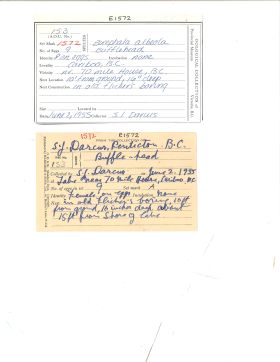 E1572
153
(A.O.U. No.)
Set Mark 1572
No. of Eggs 9 Bufflehead
Identity ♀ on eggs Incubation none
Locality Cariboo, B.C.
Vicinity nr. 70 mile House, B.C.
Nest Location 10' from ground, 16" deep
Nest Construction in old flicker's boring
OOLOGICAL COLLECTION of
Provincial Museum Victoria, B.C.
SPECIES
Date June 2, 1935 Collector S.J. Darcus
1572 E1572
S.J. Darcus, Penticton B.C.
Buffle-head
No. 153
Collected by S.J. Darcus on June 2, 1935
at Lake near 70 Mile House, Cariboo, B.C.
No. of eggs in set 9 Set mark A
Identity Female on eggs Incubation None
Nest in old flicker's boring, 10 ft
from ground, 16 inches deep, about
15 ft from shore of lake